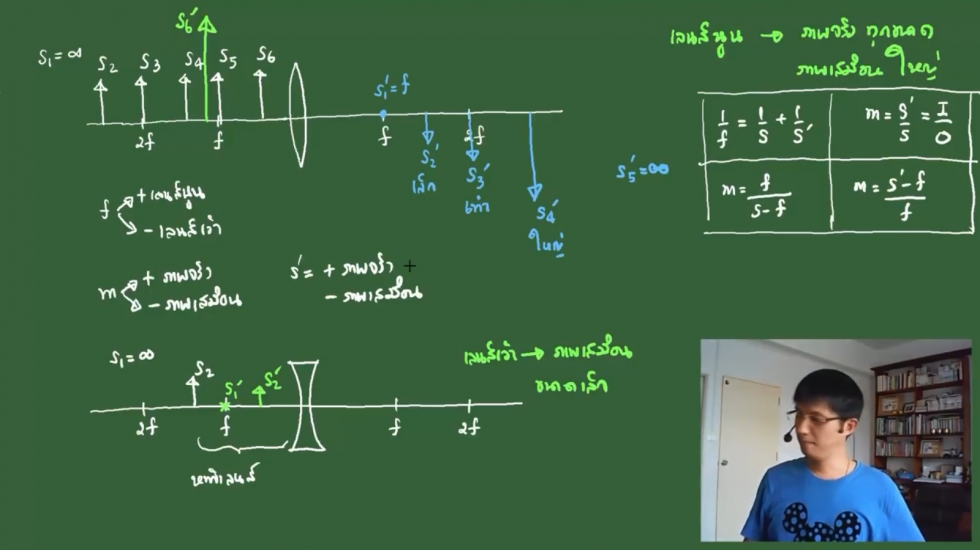 เลนส์นูน → ภาพจริง ทุกขนาด
ภาพเสมือน ใหญ่
S₆′
S₁ = ∞ S₂ S₃ S₄ S₅ S₆
2f f
S₁′ = f
f 2f
S₂′ เล็ก
S₃′ เท่า
S₄′ ใหญ่
S₅′ = ∞
1/f = 1/S + 1/S′
m = S′/S = I/O
m = f/(S-f)
m = (S′-f)/f
f + เลนส์นูน
- เลนส์เว้า
m + ภาพจริง
- ภาพเสมือน
S′ = + ภาพจริง
- ภาพเสมือน
S₁ = ∞
S₂ S₁′ S₂′
2f f f 2f
หน้าเลนส์
เลนส์เว้า → ภาพเสมือน
ขนาดเล็ก